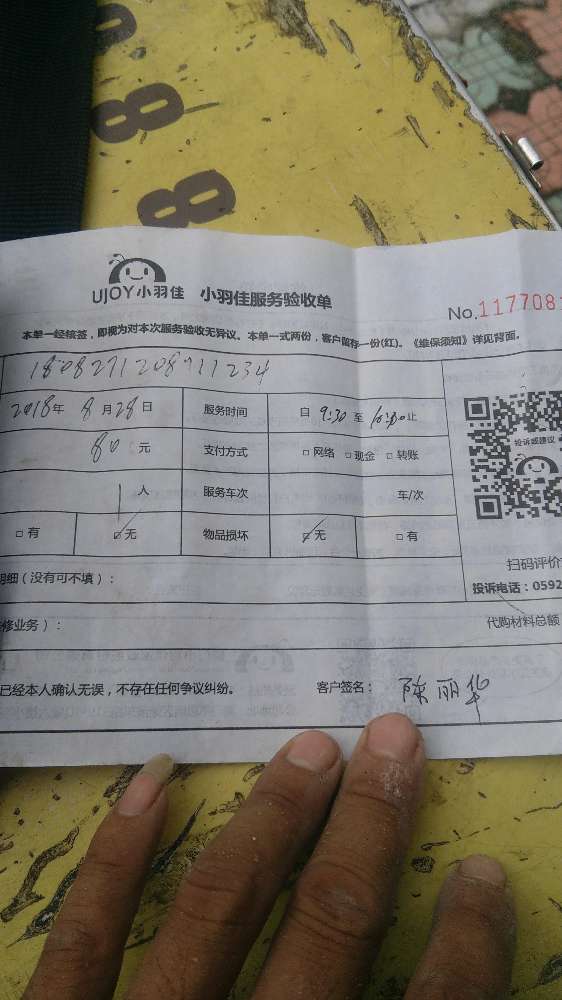 8
8
UJOY小羽佳 小羽佳服务验收单
No.117708
本单一经核签，即视为对本次服务验收无异议。本单一式两份，客户留存一份(红)。《维保须知》详见背面。
2018年 8月28日 服务时间 自 9:30 至 10:30止
80 元 支付方式 □网络 □现金 □转账
投诉或建议
1人 服务车次 车/次
□有 □无 物品损坏 □无 □有
明细（没有可不填）：
扫码评价
投诉电话：0592
修业务）： 代购材料总额
已经本人确认无误，不存在任何争议纠纷。 客户签名： 陈丽华